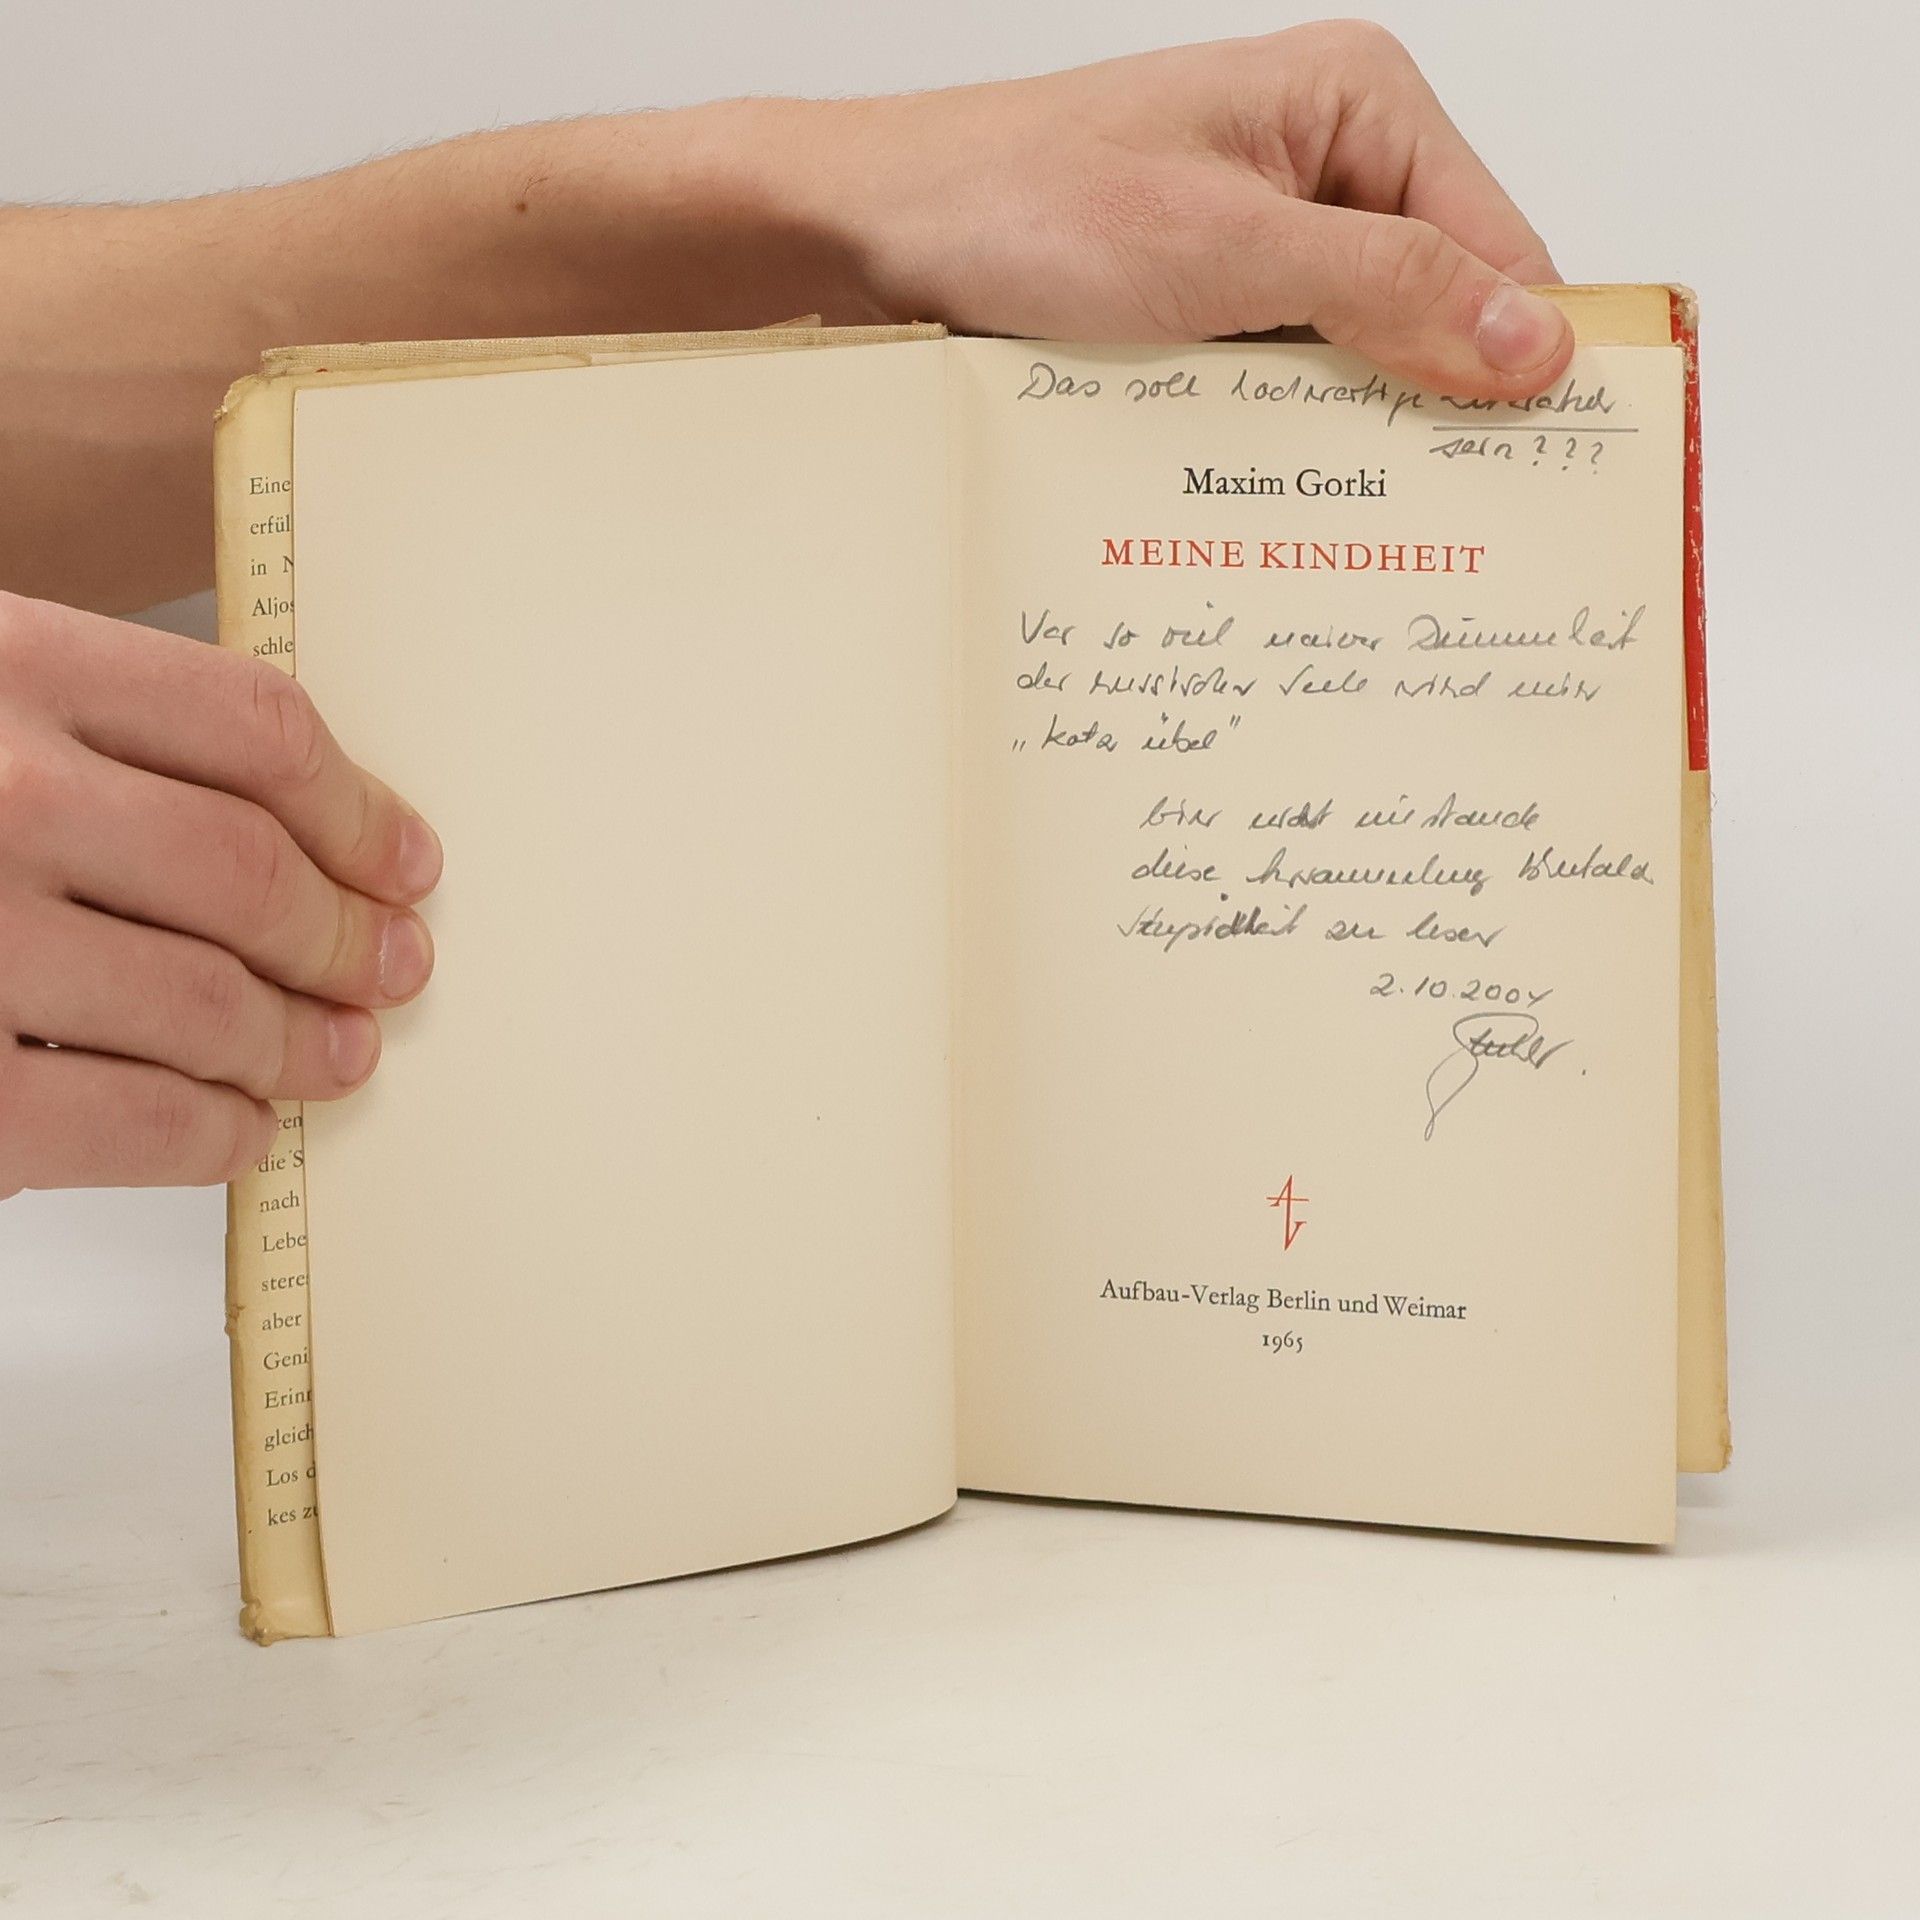 Eine
erfül
in N
Aljos
schle
ren
die S
nach
Lebe
stere
aber
Geni
Erinn
gleich
Los d
kes zu
Das soll hochwertige Literatur
sein???
Maxim Gorki
MEINE KINDHEIT
Vor so viel naiver Dummheit
der russischen Seele wird mir
"kotz übel"
bin nicht imstande
diese Ansammlung brutaler
Stupidheit zu lesen
2.10.2004
AV
Aufbau-Verlag Berlin und Weimar
1965